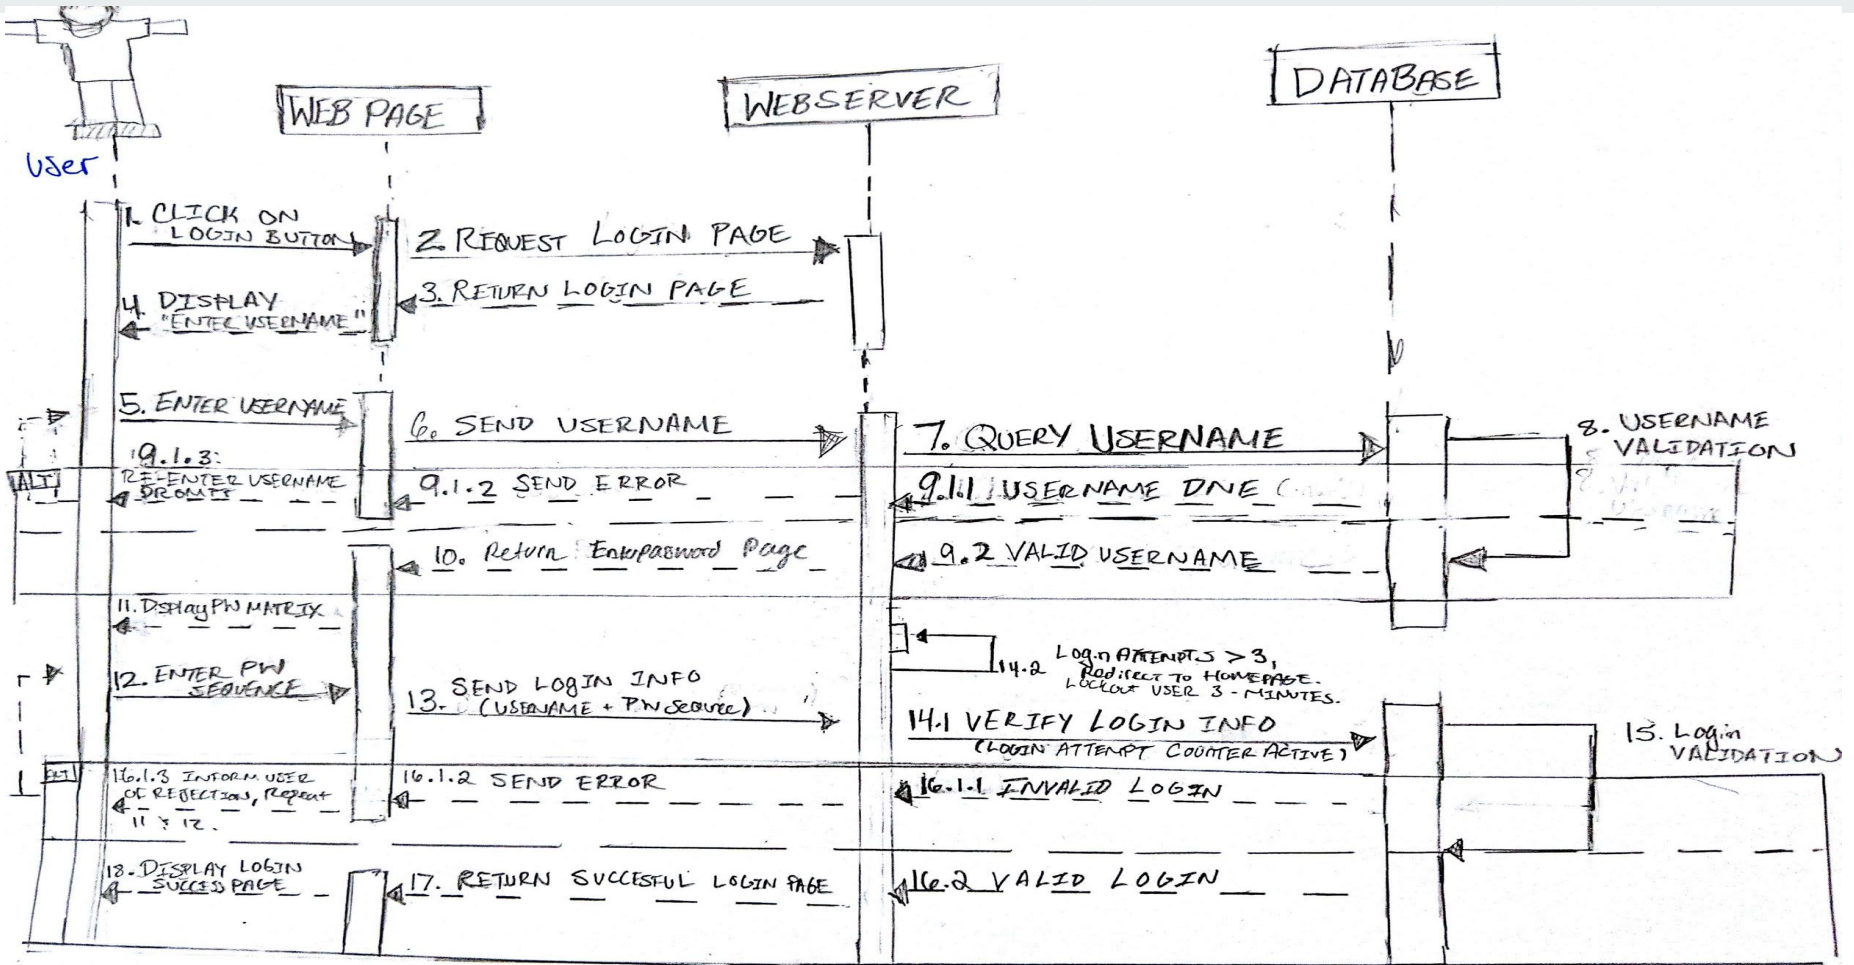 WEB PAGE
WEBSERVER
DATABASE
User
1. CLICK ON
LOGIN BUTTON
2. REQUEST LOGIN PAGE
3. RETURN LOGIN PAGE
4. DISPLAY
"ENTER USERNAME"
5. ENTER USERNAME
6. SEND USERNAME
7. QUERY USERNAME
8. USERNAME
VALIDATION
ALT
9.1.3:
RE-ENTER USERNAME
PROMPT
9.1.2 SEND ERROR
9.1.1 USERNAME DNE
10. Return Enterpassword Page
9.2 VALID USERNAME
11. Display PW MATRIX
12. ENTER PW
SEQUENCE
13. SEND LOGIN INFO
(USERNAME + PW Sequence)
14.2 Login ATTEMPTS > 3,
Redirect TO HOMEPAGE.
LOCKOUT USER 3-MINUTES.
14.1 VERIFY LOGIN INFO
(LOGIN ATTEMPT COUNTER ACTIVE)
15. Login
VALIDATION
ALT
16.1.3 INFORM USER
OF REJECTION, Repeat
11 & 12.
16.1.2 SEND ERROR
16.1.1 INVALID LOGIN
18. DISPLAY LOGIN
SUCCES PAGE
17. RETURN SUCCESFUL LOGIN PAGE
16.2 VALID LOGIN